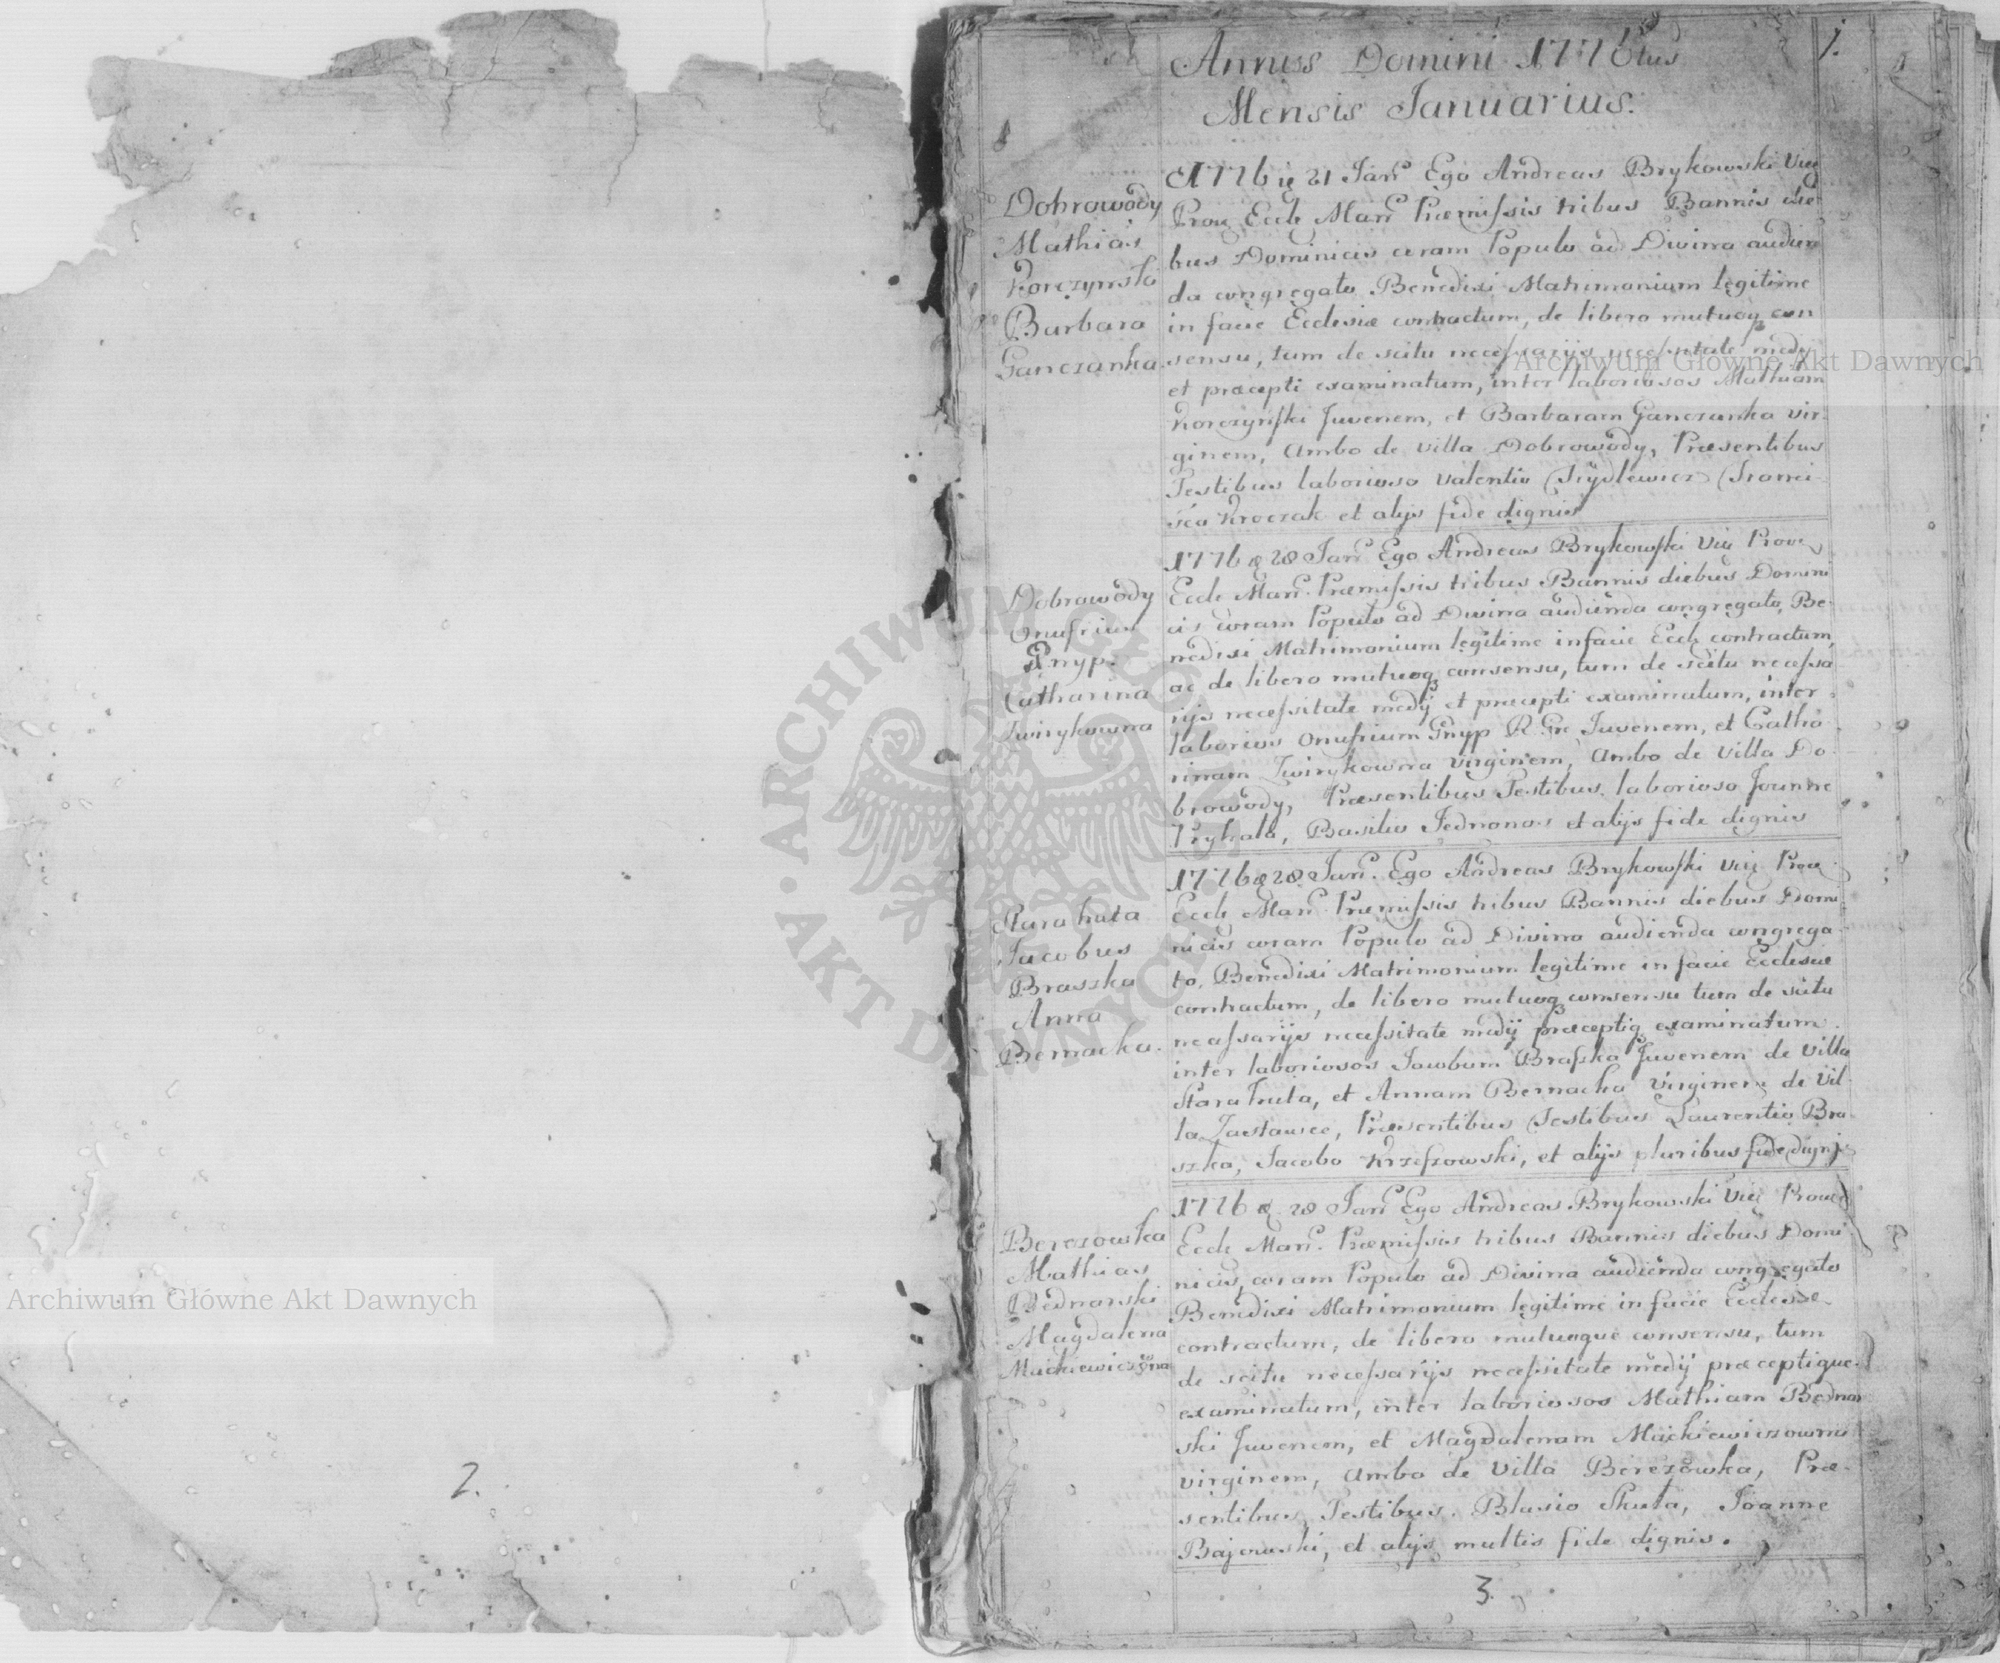 Annus Domini 1776tus
1.
Mensis Januarius.
Dobrowody
Mathias
Korczynski
Barbara
Ganczanka
1776 21 Jan Ego Andreas Brykowski
Eccle Præmissis tribus Bannis die
bus Dominicis coram Populo ad Divina audien
da congregato Benedixi Matrimonium legitime
in facie Ecclesiæ contractum, de libero mutuoq con
sensu, tum de scitu necessarijs necessitate medij
et præcepti examinatum, inter laboriosos Mathiam
Korczynski Juvenem, et Barbaram Ganczanka vir-
ginem, ambo de villa Dobrowody, Præsentibus
Testibus laborioso Valentio Franci
sco Kroczak et alijs fide dignis
Dobrowody
Onufrius
Gnyp.
Catharina
Zwirykowna
1776 28 Jan Ego Andreas Brykowski
Eccle Præmissis tribus Bannis diebus Domini
cis coram Populo ad Divina audienda congregato, Be-
nedixi Matrimonium legitime in facie Eccle contractum,
ac de libero mutuoq consensu, tum de scitu necessa
rijs necessitate medij et præcepti examinatum, inter
laborios Onufrium Gnyp R. Gr. Juvenem, et Catha
rinam Zwirykowna virginem, Ambo de Villa Do-
browody, Præsentibus Testibus laborioso Joanne
Prykala, Basilio et alijs fide dignis
Stara huta
Jacobus
Braszka
Anna
Bernacka.
1776 28 Jan. Ego Andreas Brykowski
Eccle Præmissis tribus Bannis diebus Domi
nicis coram Populo ad Divina audienda congrega
to, Benedixi Matrimonium legitime in facie Ecclesiæ
contractum, de libero mutuoq consensu tum de scitu
necessarijs necessitate medij præceptiq examinatum
inter laboriosos Jacobum Braszka Juvenem de Villa
Stara huta, et Annam Bernacka Virginem de Vil-
la Zastawce, Præsentibus Testibus Laurentio Bra
szka, Jacobo, et alijs pluribus fide dignis
Berezowka
Mathias
Bednarski
Magdalena
Mackiewiczowna
1776 28 Jan Ego Andreas Brykowski
Eccle Præmissis tribus Bannis diebus Domi
nicis, coram Populo ad Divina audienda congregato
Benedixi Matrimonium legitime in facie Ecclesiæ
contractum, de libero mutuoque consensu, tum
de scitu necessarijs necessitate medij præceptique
examinatum, inter laboriosos Mathiam Bednar
ski Juvenem, et Magdalenam Mackiewiczowna
virginem, ambo de Villa Berezowka, Præ-
sentibus Testibus. Blasio Skuta, Joanne
Bajowski, et alijs multis fide dignis.
2.
3.
Archiwum Główne Akt Dawnych
Archiwum Główne Akt Dawnych
ARCHIWUM GŁÓWNE AKT DAWNYCH